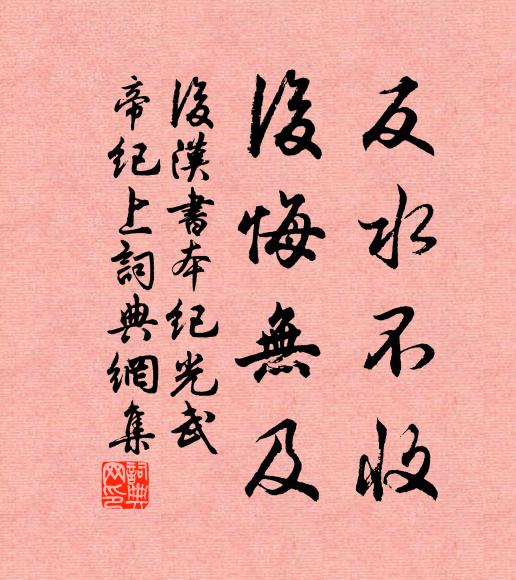 反水不收
後悔無及
後漢書本紀光武
帝紀上詞典網集
詞典网印